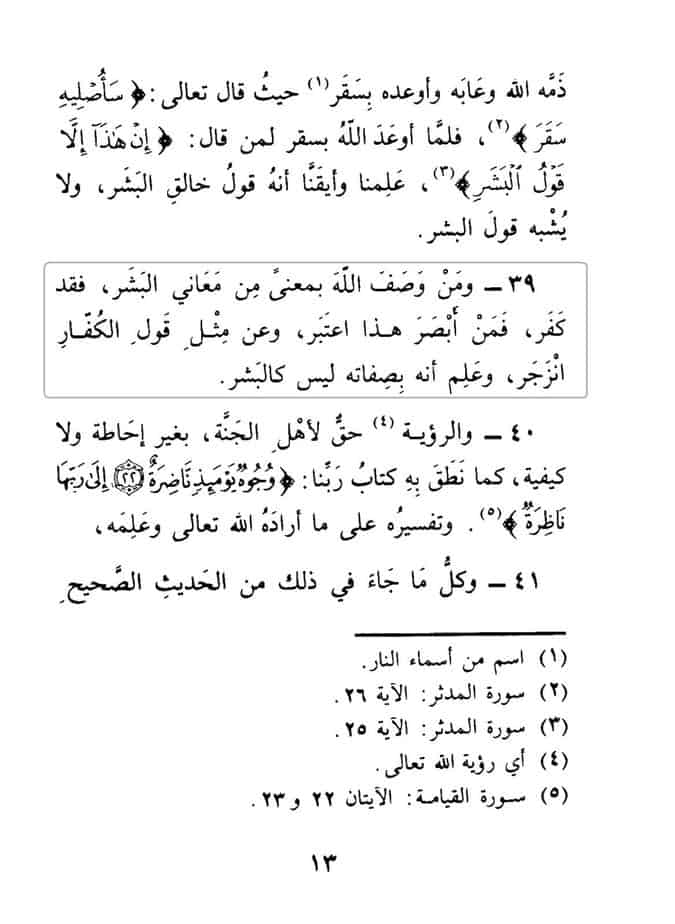 ذَمَّه الله وعَابَه وأوعده بِسَقَر(١) حيثُ قال تعالى: ﴿سَأُصْلِيهِ
سَقَرَ﴾(٢)، فلمَّا أوعَدَ اللّهُ بسقر لمن قال: ﴿إِنْ هَٰذَآ إِلَّا
قَوْلُ ٱلْبَشَرِ﴾(٣)، عَلِمنا وأيقَنَّا أنهُ قولُ خالقِ البَشَر، ولا
يُشْبه قولَ البشر.
٣٩ ـ ومَنْ وَصَفَ اللّهَ بمعنىً مِن مَعَاني البَشَر، فقد
كَفَر، فَمَنْ أَبْصَرَ هذا اعتَبَر، وعن مِثْلِ قَولِ الكُفّارِ
انْزَجَر، وعَلِم أنه بِصِفاته ليس كالبَشر.
٤٠ ـ والرؤية(٤) حقٌّ لأهْلِ الجَنَّة، بغير إحَاطة ولا
كيفية، كما نَطَقَ بِهِ كتابُ رَبِّنا: ﴿وُجُوهٌ يَوْمَئِذٍ نَّاضِرَةٌ ٢٢ إِلَىٰ رَبِّهَا
نَاظِرَةٌ﴾(٥). وتفسيرُه على ما أرادَهُ الله تعالى وعَلِمَه،
٤١ ـ وكلُّ مَا جَاءَ في ذلك من الحَديثِ الصَّحيحِ
(١) اسم من أسماء النار.
(٢) سورة المدثر: الآية ٢٦.
(٣) سورة المدثر: الآية ٢٥.
(٤) أي رؤية الله تعالى.
(٥) سورة القيامة: الآيتان ٢٢ و٢٣.
١٣